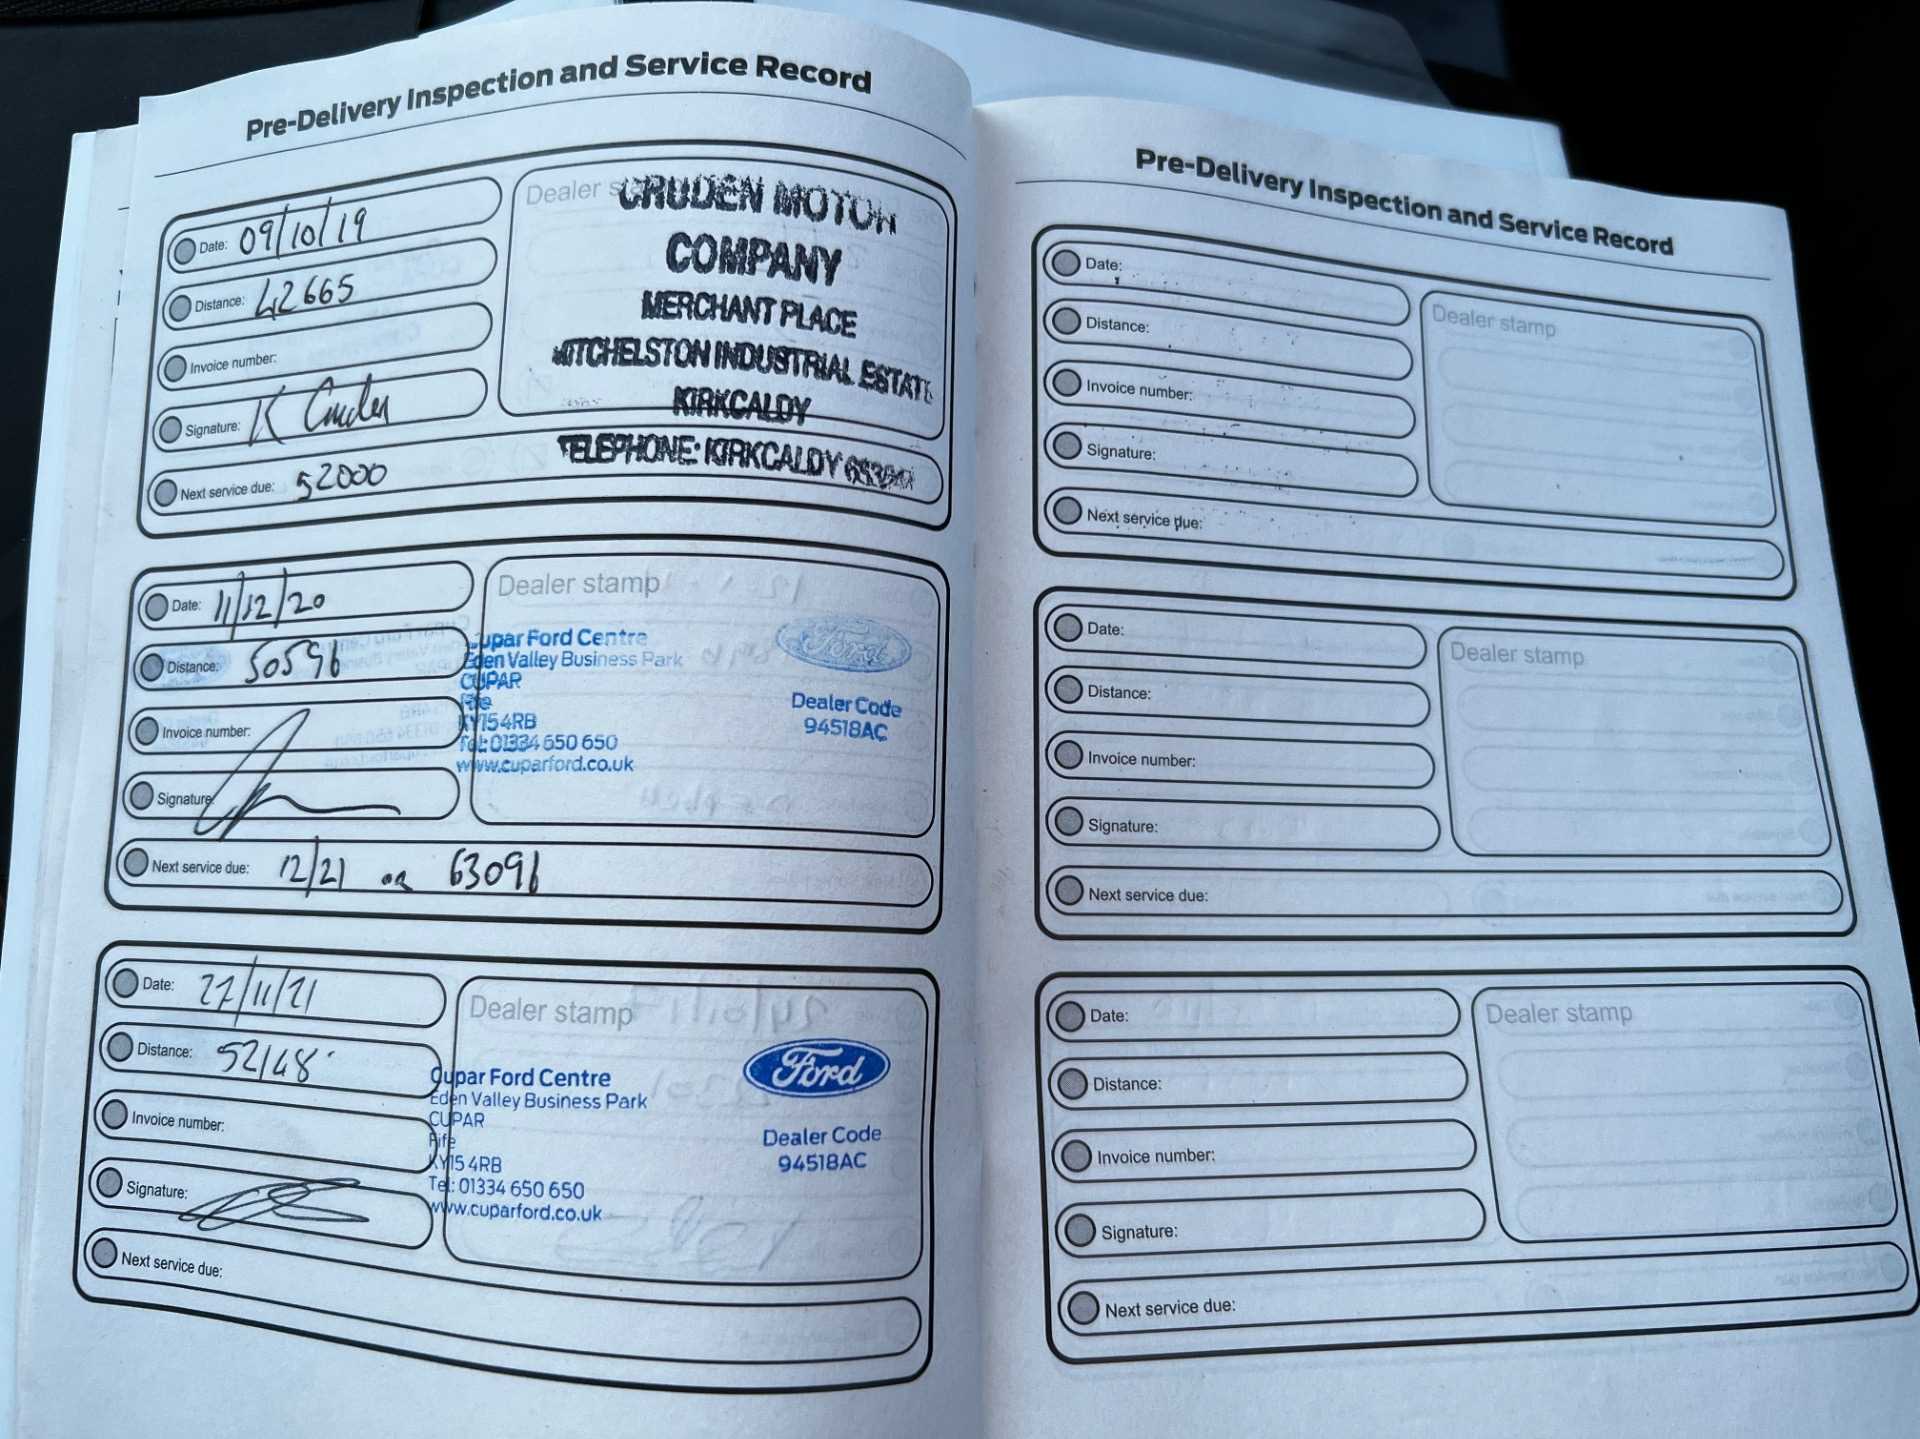 Pre-Delivery Inspection and Service Record
Date: 09/10/19
Distance: 42665
Invoice number:
Signature: K Cruden
Next service due: 52000
Dealer
CRUDEN MOTOR
COMPANY
MERCHANT PLACE
MITCHELSTON INDUSTRIAL ESTATE
KIRKCALDY
TELEPHONE: KIRKCALDY
Date: 11/12/20
Distance: 50596
Invoice number:
Signature:
Next service due: 12/21 or 63096
Dealer stamp
Cupar Ford Centre
Eden Valley Business Park
CUPAR
Fife
KY15 4RB
Tel: 01334 650 650
www.cuparford.co.uk
Ford
Dealer Code
94518AC
Date: 27/11/21
Distance: 52148
Invoice number:
Signature:
Next service due:
Dealer stamp
Cupar Ford Centre
Eden Valley Business Park
CUPAR
Fife
KY15 4RB
Tel: 01334 650 650
www.cuparford.co.uk
Ford
Dealer Code
94518AC
Pre-Delivery Inspection and Service Record
Date:
Distance:
Invoice number:
Signature:
Next service due:
Dealer stamp
Date:
Distance:
Invoice number:
Signature:
Next service due:
Dealer stamp
Date:
Distance:
Invoice number:
Signature:
Next service due:
Dealer stamp